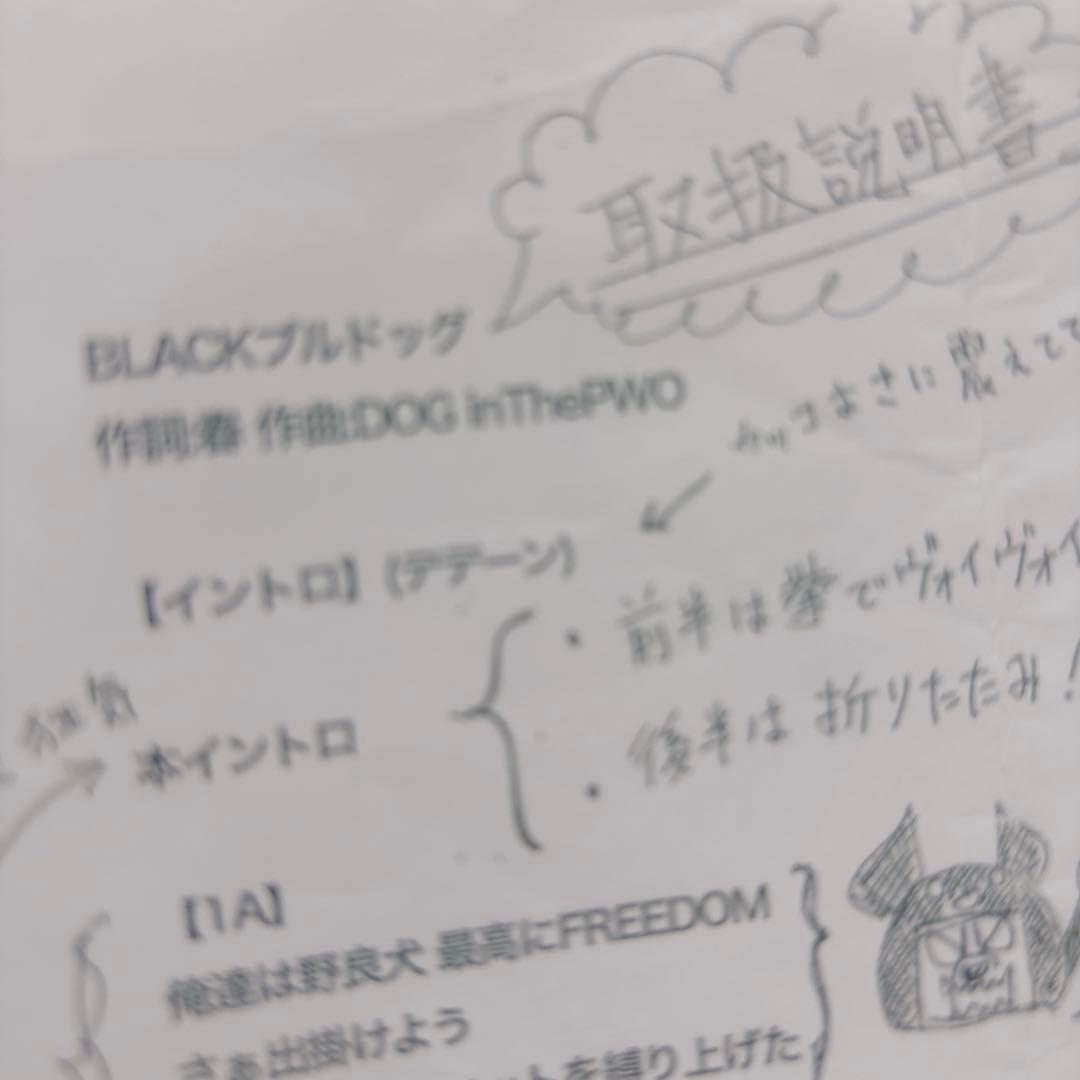 取扱説明書
BLACKブルドッグ
作詞:春 作曲:DOG inThePWO
カッコよさに震えてて
【イントロ】(テテーン)
・前半は拳でヴォイヴォイ
・後半は折りたたみ!
狂気
本イントロ
【1A】
俺達は野良犬 最高にFREEDOM
さぁ出掛けよう
を縛り上げた